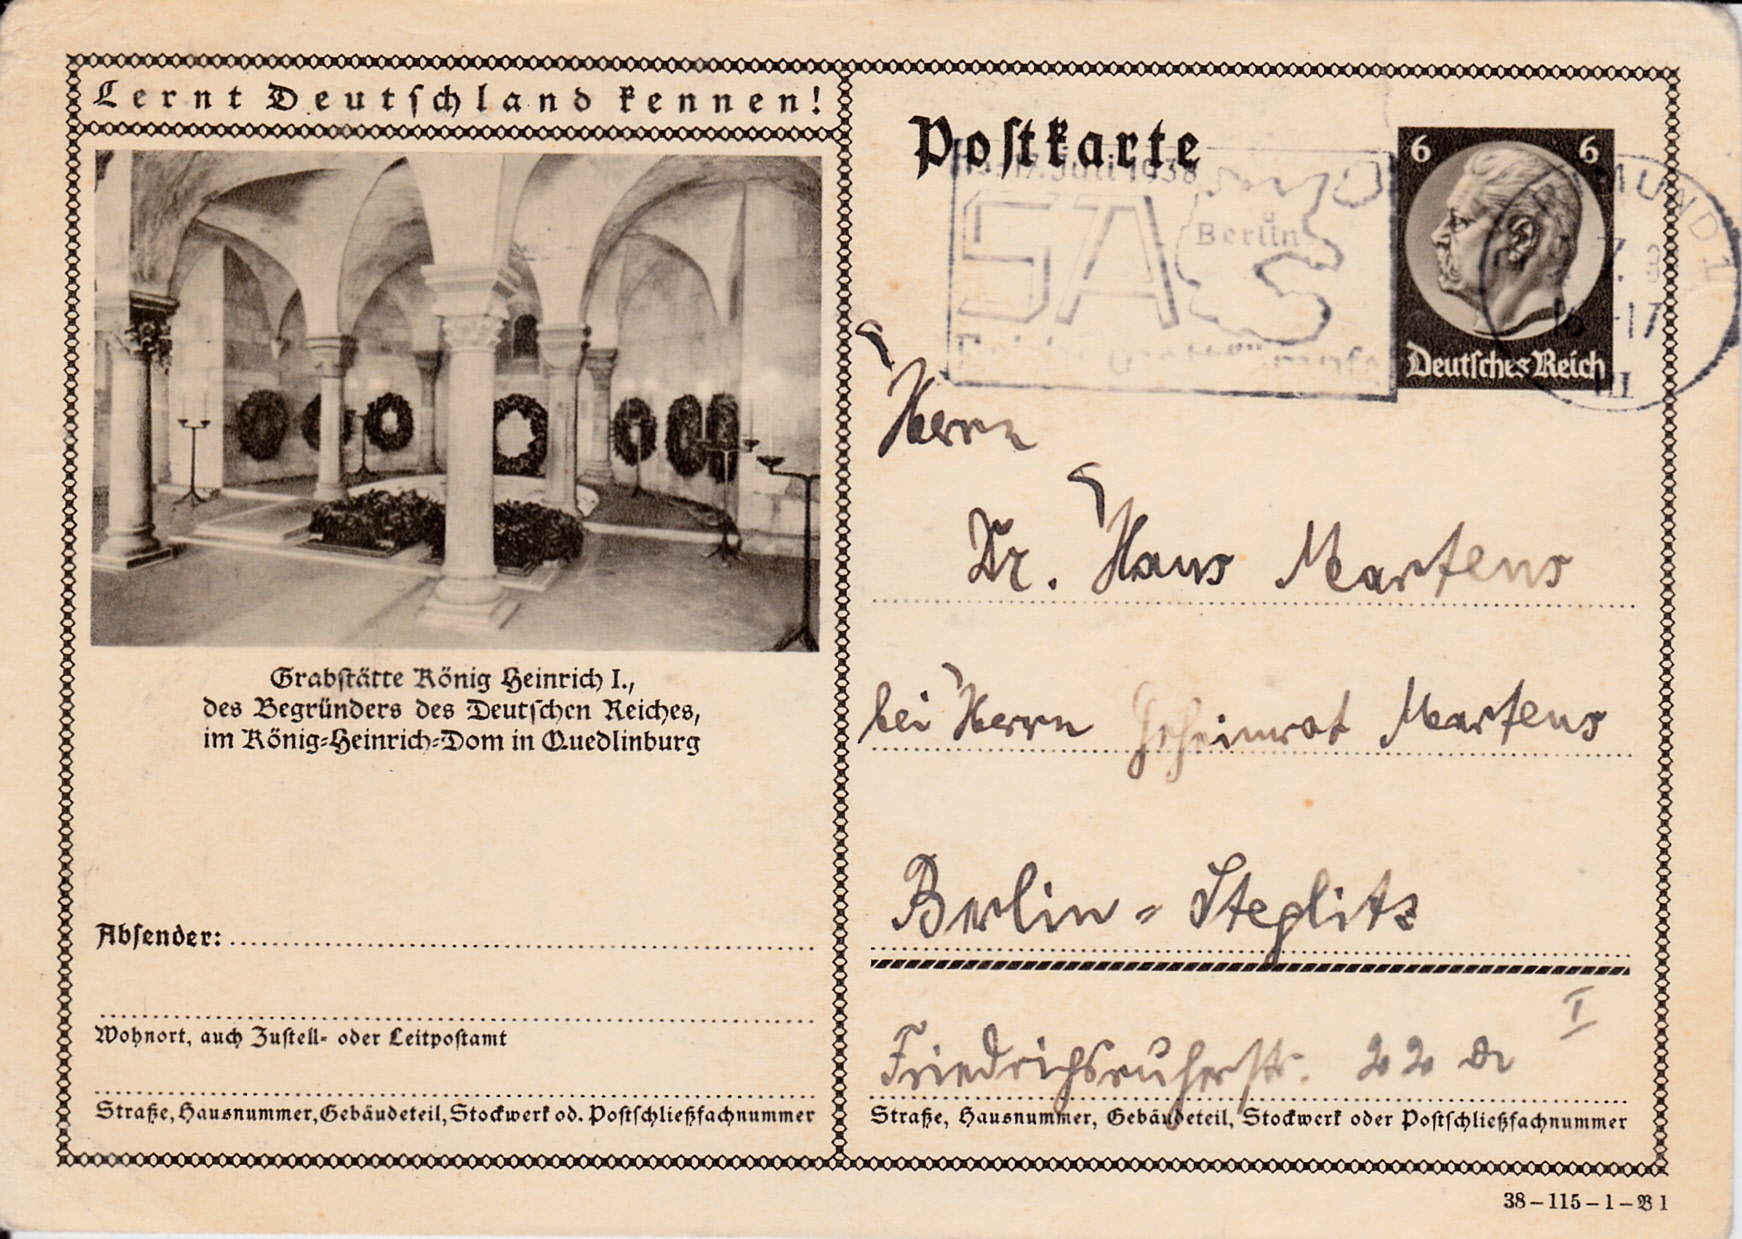 Lernt Deutschland kennen!
Grabstätte König Heinrich I.,
des Begründers des Deutschen Reiches,
im König-Heinrich-Dom in Quedlinburg
Absender:
Wohnort, auch Zustell- oder Leitpostamt
Straße, Hausnummer, Gebäudeteil, Stockwerk od. Postschließfachnummer
Postkarte
17. Juli 1938
SA
Berlin
6 6
Deutsches Reich
MUND 1
-17
Herrn
Dr. Hans Martens
bei Herrn Geheimrat Martens
Berlin-Steglitz
I
Friedrichsruherstr. 22
Straße, Hausnummer, Gebäudeteil, Stockwerk oder Postschließfachnummer
38-115-1-B 1